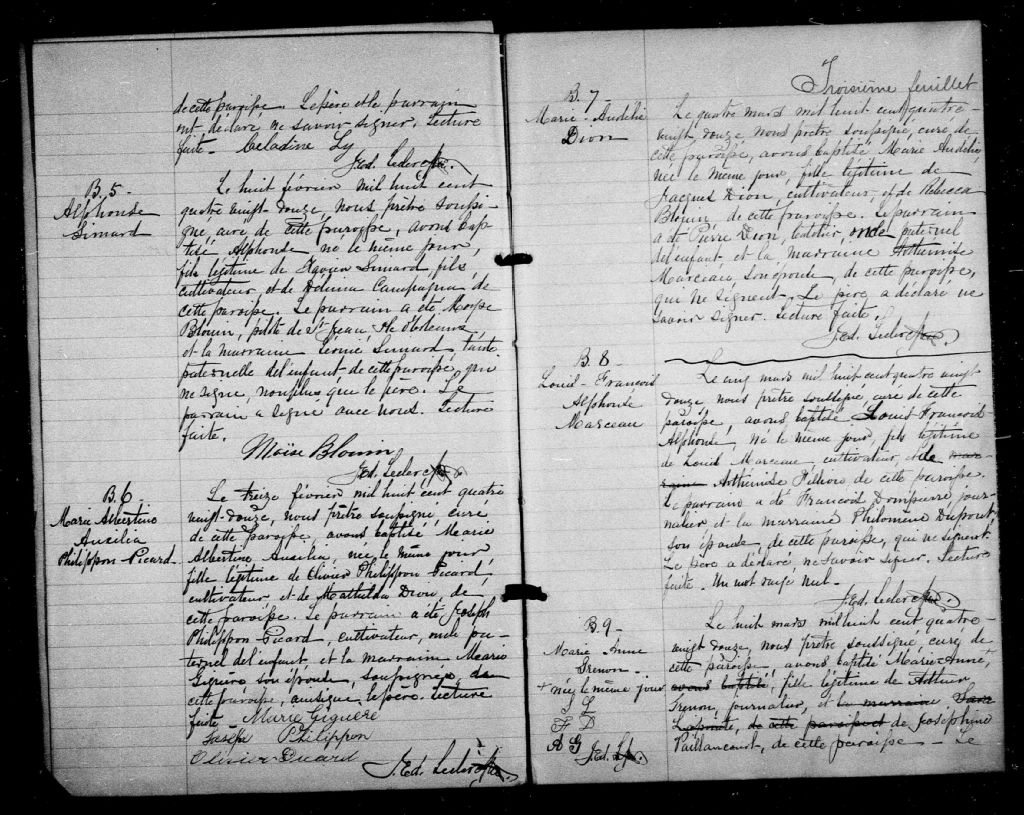 de cette paroisse. Le père et le parrain
ont déclaré ne savoir signer. Lecture
faite. Celadine Ly
J. Ed. Leclerc ptre.
B. 5 -
Alphonse
Simard
Le huit février mil huit cent
quatre vingt-douze, nous prêtre soussi-
gné, curé de cette paroisse, avons bap-
tisé Alphonse né le même jour,
fils légitime de Xavier Simard, fils,
cultivateur, et de Adélina Campagna de
cette paroisse. Le parrain a été Moyse
Blouin, pilote de St Jean, Ile d'Orléans,
et la marraine Simard, tante
paternelle de l'enfant, de cette paroisse, qui
ne signe, non plus que le père. Le
parrain a signé avec nous. Lecture
faite.
Moïse Blouin
J. Ed. Leclerc ptre
B. 6 -
Marie Albertine
Ausilia
Philippon Picard -
Le treize février mil huit cent quatre
vingt-douze, nous prêtre soussigné, curé
de cette paroisse, avons baptisé Marie
Albertine Ausilia, née le même jour
fille légitime de Olivier Philippon Picard,
cultivateur, et de Mathilda Dion, de
cette paroisse. Le parrain a été Joseph
Philippon Picard, cultivateur, oncle pa-
ternel de l'enfant, et la marraine Marie
Giguère son épouse, soussignés, de
cette paroisse, ainsi que le père. Lecture
faite - Marie Giguère
Joseph Philippon
Olivier Picard
J. Ed. Leclerc ptre.
Troisième feuillet
B. 7
Marie - Audélie
Dion
Le quatre mars mil huit cent quatre-
vingt-douze, nous prêtre soussigné, curé de
cette paroisse, avons baptisé Marie Audélie,
née le même jour, fille légitime de
Jacques Dion, cultivateur, et de Rebecca
Blouin, de cette paroisse. Le parrain
a été Pierre Dion, oncle paternel
de l'enfant, et la marraine Arthémise
Marceau, son épouse, de cette paroisse,
qui ne signent. Le père a déclaré ne
savoir signer. Lecture faite.
J. Ed. Leclerc ptre
B. 8
Louis - François
Alphonse
Marceau
Le cinq mars mil huit cent quatre vingt
douze nous prêtre soussigné, curé de cette
paroisse, avons baptisé Louis François
Alphonse, né le même jour, fils légitime
de Louis Marceau cultivateur, et de mar-
raine Arthémise de cette paroisse.
Le parrain a été François Dompierre jour-
nalier et la marraine Philomène Dupont,
son épouse, de cette paroisse, qui ne signent.
Le père a déclaré ne savoir signer. Lecture
faite. Un mot rayé nul.
J. Ed. Leclerc ptre
B. 9 -
Marie - Anne
Grenon -
+ née le même jour
J L
F D
A G J. Ed. L. ptre
Le huit mars mil huit cent quatre-
vingt douze, nous prêtre soussigné, curé de
cette paroisse, avons baptisé Marie-Anne, +
avons baptisé, fille légitime de Arthur
Grenon, journalier, et la marraine
de cette paroisse et de Joséphine
Vaillancourt, de cette paroisse - Le